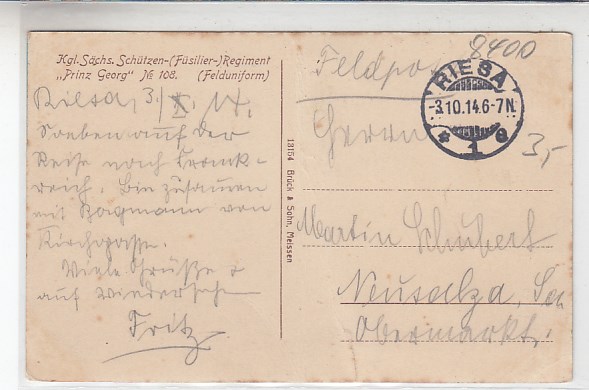 Kgl. Sächs. Schützen-(Füsilier-)Regiment
„Prinz Georg" № 108. (Felduniform)
Riesa, 3./X. 14.
Soeben auf der
Reise nach Frank-
reich. Bin zusammen
mit Bagmann von
Kirchgasse.
Viele Grüße &
auf Wiedersehn
Fritz
13154 Brück & Sohn, Meissen
8400
Feldpost
RIESA
-3.10.14.6-7N.
* 1 a
3,-
Herrn
Martin Schubert
Neusalza, Sa
Obermarkt.